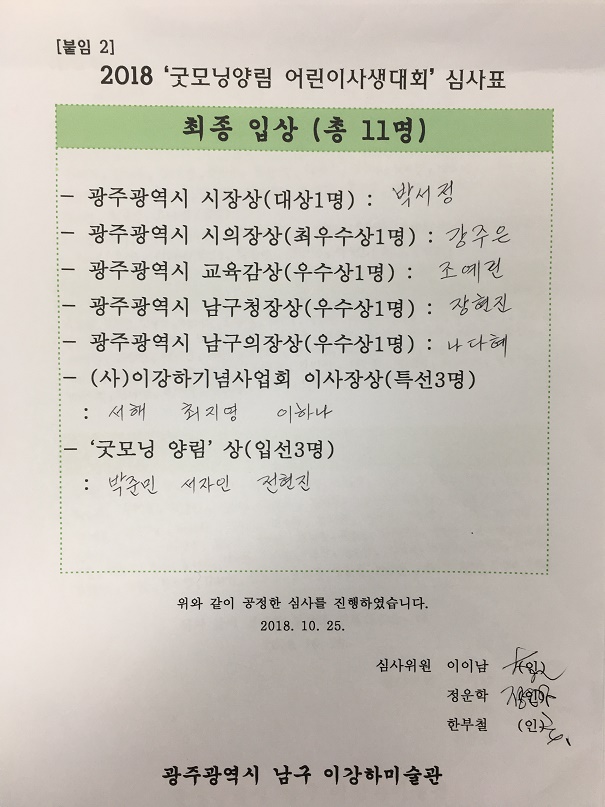 [붙임 2]
2018 ‘굿모닝양림 어린이사생대회’ 심사표
최종 입상 (총 11명)
- 광주광역시 시장상(대상1명) : 박서정
- 광주광역시 시의장상(최우수상1명) : 강주은
- 광주광역시 교육감상(우수상1명) : 조예린
- 광주광역시 남구청장상(우수상1명) : 장현진
- 광주광역시 남구의장상(우수상1명) : 나다혜
- (사)이강하기념사업회 이사장상(특선3명)
: 서해 최지영 이하나
- ‘굿모닝 양림’ 상(입선3명)
: 박준민 서자인 전현진
위와 같이 공정한 심사를 진행하였습니다.
2018. 10. 25.
심사위원 이이남 (인)
정운학 (인)
한부철 (인)
광주광역시 남구 이강하미술관